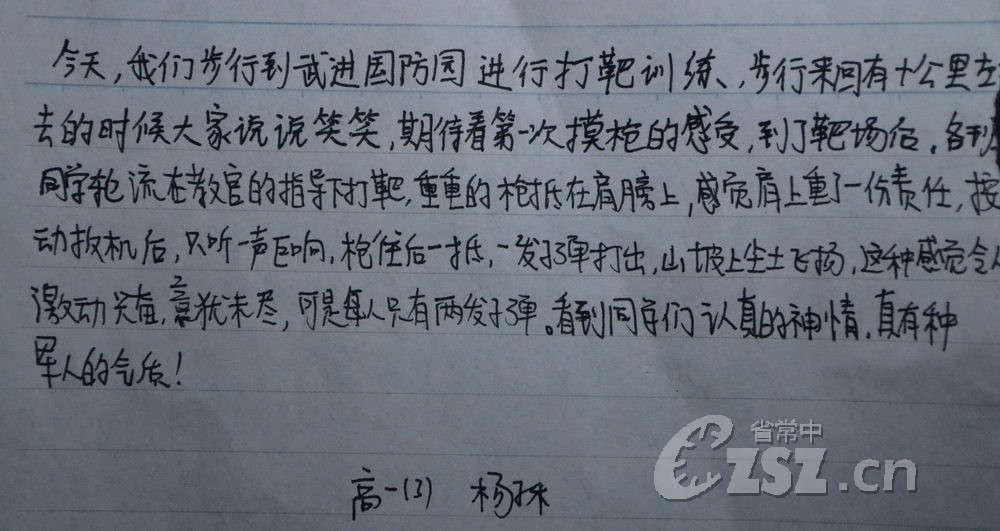 今天，我们步行到武进国防园进行打靶训练、步行来回有十公里左
去的时候大家说说笑笑，期待着第一次摸枪的感受，到了靶场后，各
同学轮流在教官的指导下打靶，重重的枪抵在肩膀上，感觉肩上重了一份责任，按
动扳机后，只听一声巨响，枪往后一抵，一发子弹打出，山坡上尘土飞扬，这种感觉令人
激动兴奋，意犹未尽，可是每人只有两发子弹。看到同学们认真的神情，真有种
军人的气质！
高一(3) 杨
省常中
CZSZ.cn